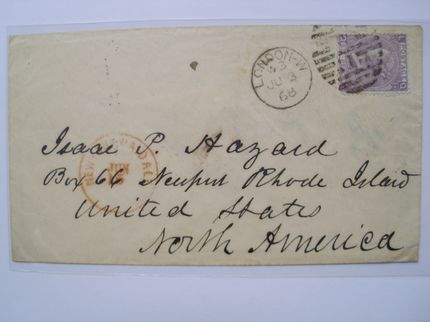 LONDON-W
W 3
JU 3
68
Isaac P. Hazard
Box 66 Newport Rhode Island
United States
North America